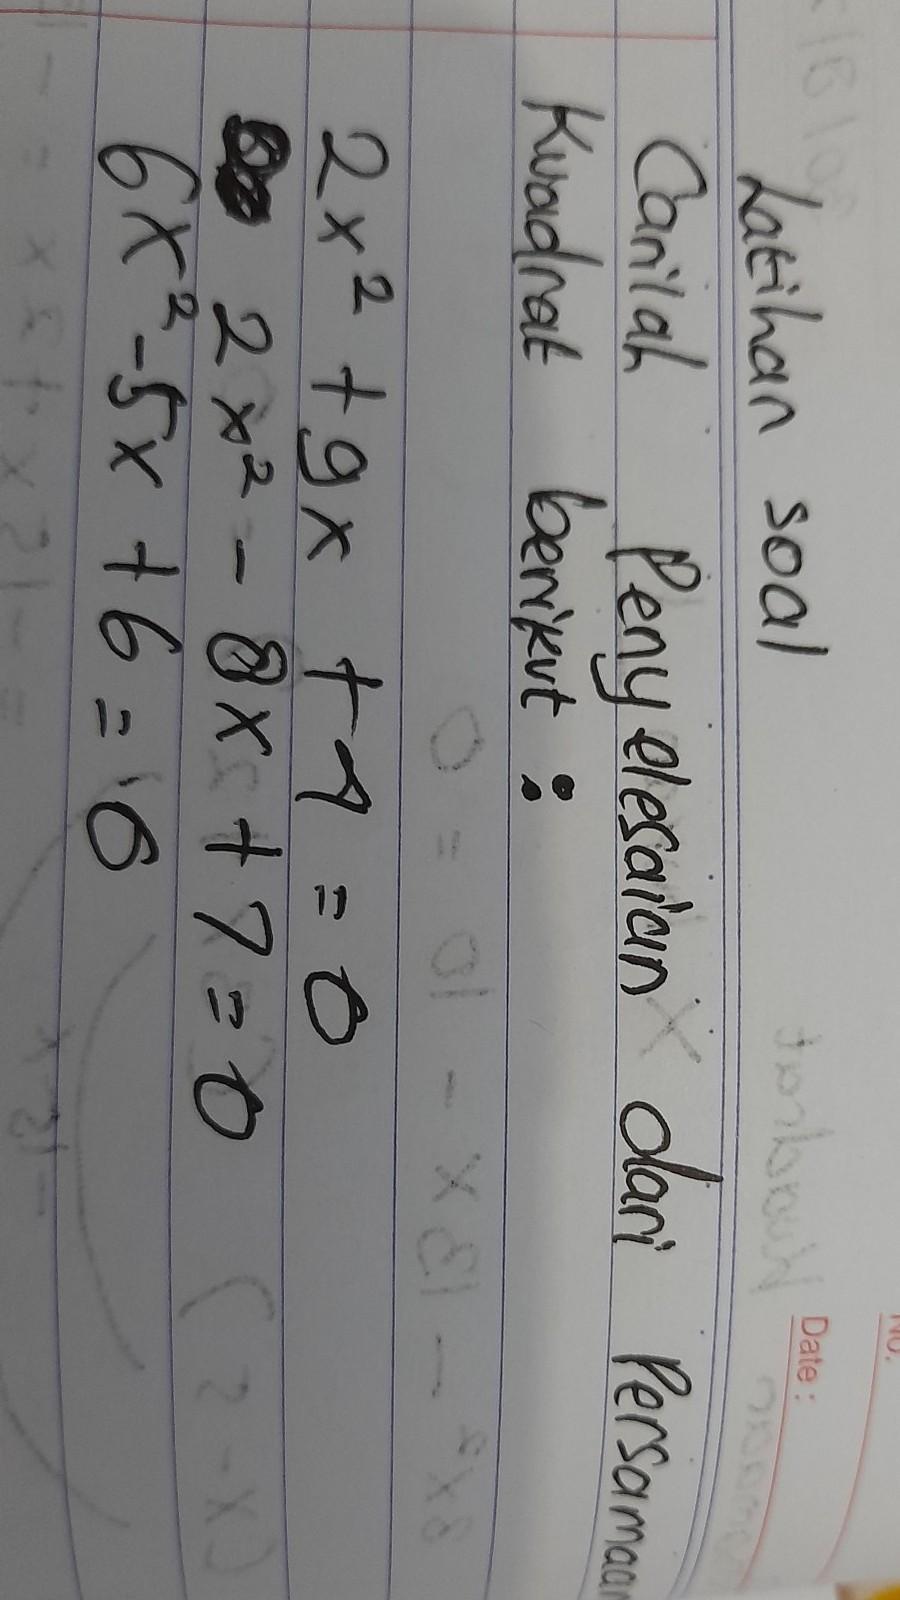 No.
Date:
Latihan soal
Carilah Penyelesaian X dari Persamaan
Kuadrat berikut :
2x² + 9x + 9 = 0
2x² - 8x + 7 = 0
6x² - 5x + 6 = 6